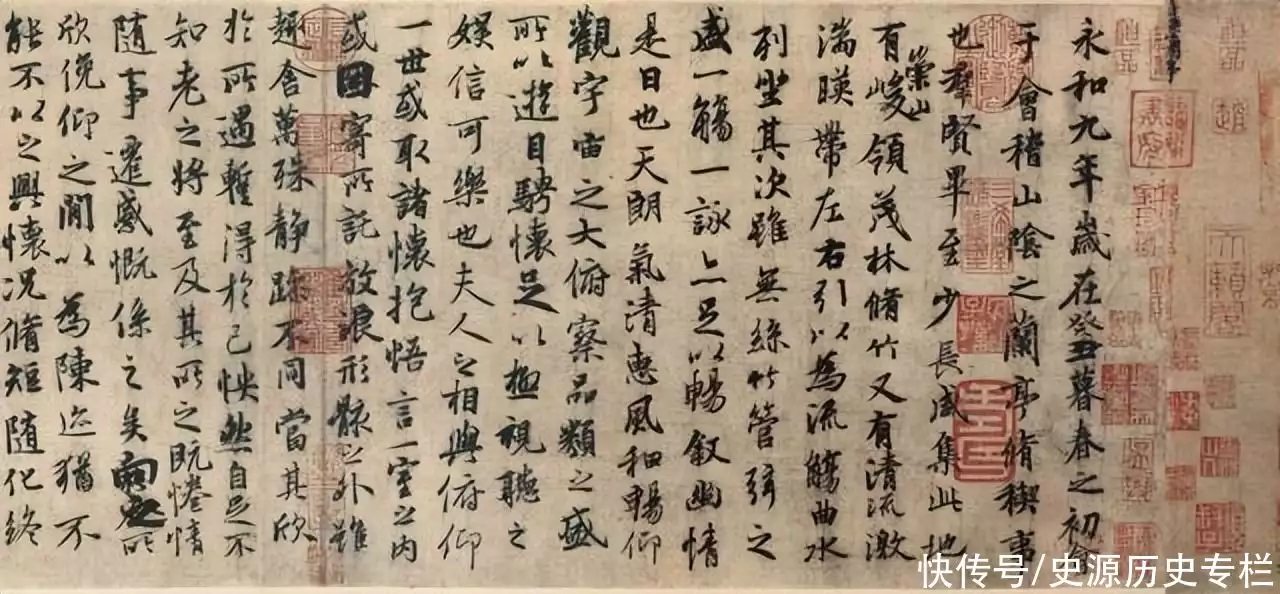 永和九年歲在癸丑暮春之初會
于會稽山陰之蘭亭脩稧事
也羣賢畢至少長咸集此地
有崇山峻領茂林脩竹又有清流激
湍暎帶左右引以為流觴曲水
列坐其次雖無絲竹管弦之
盛一觴一詠亦足以暢敘幽情
是日也天朗氣清惠風和暢仰
觀宇宙之大俯察品類之盛
所以遊目騁懷足以極視聽之
娛信可樂也夫人之相與俯仰
一世或取諸懷抱悟言一室之內
或因寄所託放浪形骸之外雖
趣舍萬殊靜躁不同當其欣
於所遇暫得於己怏然自足不
知老之將至及其所之既惓情
隨事遷感慨係之矣向之所
欣俛仰之閒以為陳迹猶不
能不以之興懷況脩短隨化終
快传号/史源历史专栏